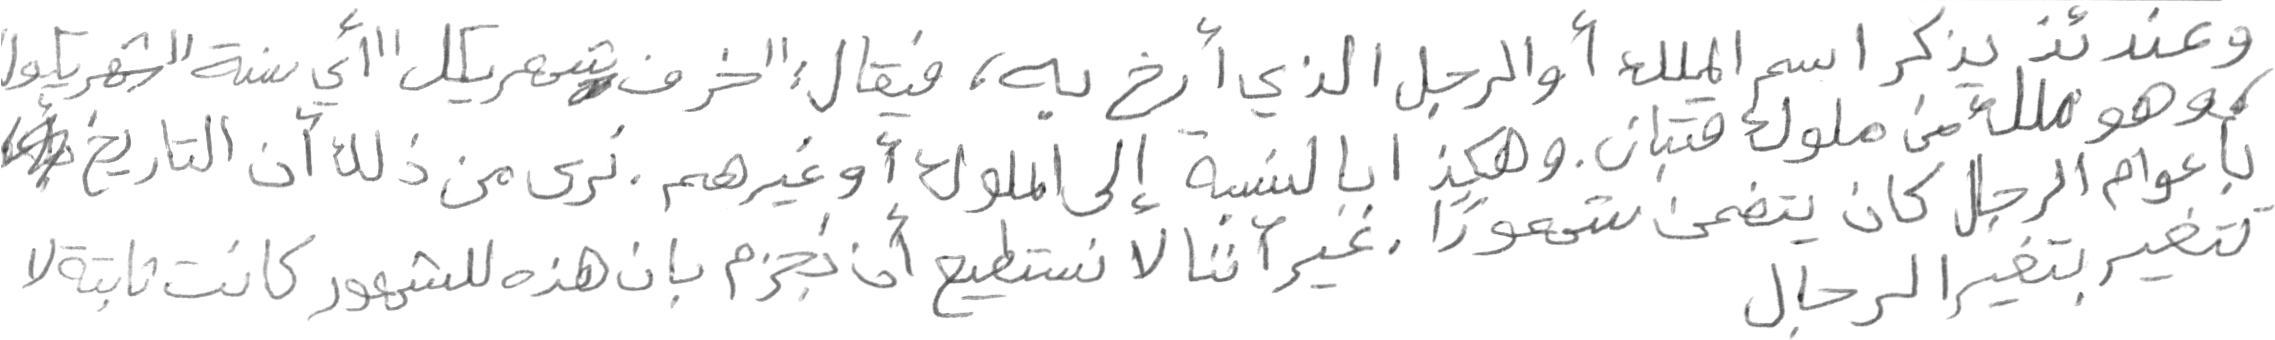 وعندئذ يذكر اسم الملك أو الرجل الذي أرخ به، فيقال: "خرف شهر يكل" أي سنة "شهر يكول"
، وهو ملك من ملوك قتبان. وهكذا بالنسبة إلى الملوك أو غيرهم. نرى من ذلك أن التاريخ
بأعوام الرجال كان يتضمن شهورًا. غير أننا لا نستطيع أن نجزم بان هذه للشهور كانت ثابتة لا
تتغير بتغير الرجال